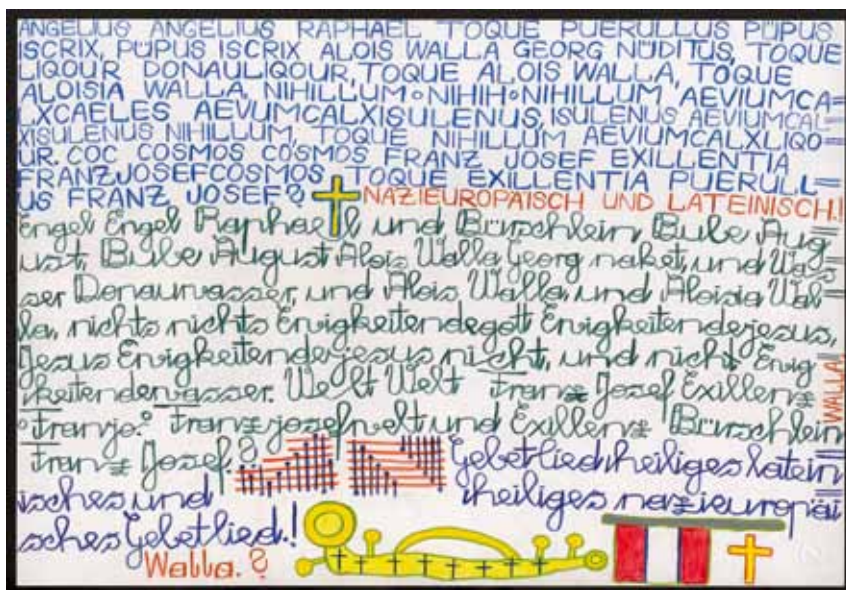 ANGELIUS ANGELIUS RAPHAEL TOQUE PUERULLUS PÜPUS
ISCRIX, PÜPUS ISCRIX ALOIS WALLA GEORG NUDITUS, TOQUE
LIQOUR DONAULIQOUR, TOQUE ALOIS WALLA, TOQUE
ALOISIA WALLA, NIHILLUM∘NIHIH∘NIHILLUM AEVIUMCA=
LXCAELES AEVUMCALXISULENUS, ISULENUS AEVIUMCAL=
XISULENUS NIHILLUM, TOQUE NIHILLUM AEVIUMCALXLIQO=
UR. COC COSMOS COSMOS FRANZ JOSEF EXILLENTIA
FRANZJOSEFCOSMOS, TOQUE EXILLENTIA PUERULL=
US FRANZ JOSEF.? NAZIEUROPÄISCH UND LATEINISCH.!
Engel Engel Raphael, und Bürschlein Bube Aug=
ust, Bube August Alois Walla Georg naket, und Was=
ser Donauwasser, und Alois Walla, und Aloisia Wal=
la, nichts nichts Ewigkeitendegott Ewigkeitendejesus,
Jesus Ewigkeitendejesus nicht, und nicht Ewig=
keitenderwasser. Welt Welt Franz Josef Exillenz
Franjo.° Franzjosefwelt und Exillenz Bürschlein
Franz Josef.? Gebetlied heiliges latein=
isches und heiliges nazieuropäi=
sches Gebetlied.!
Walla.?
WALLA.